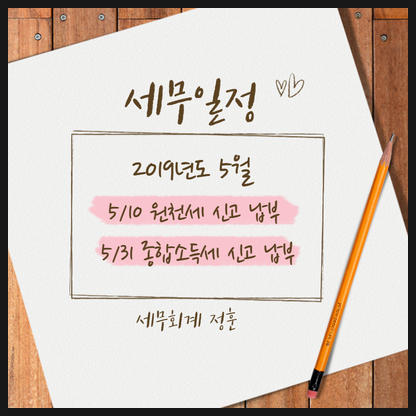 세무일정
2019년도 5월
5/10 원천세 신고 납부
5/31 종합소득세 신고 납부
세무회계 정훈